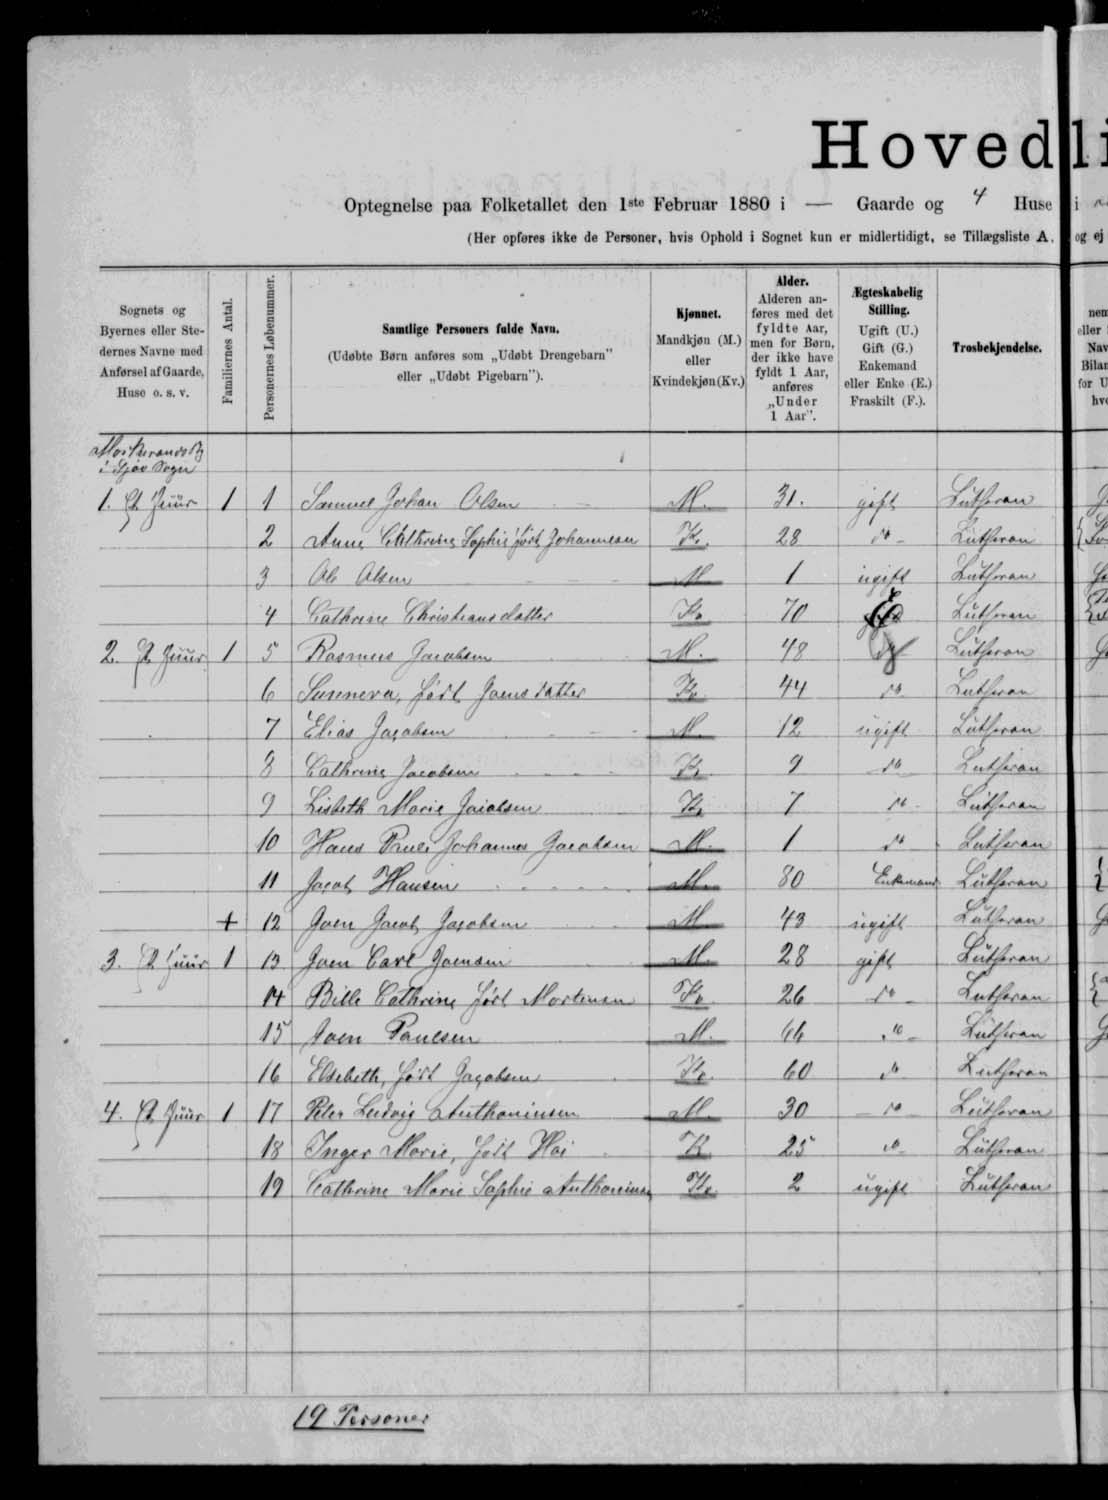 Hovedli
Optegnelse paa Folketallet den 1ste Februar 1880 i — Gaarde og 4 Huse i
(Her opføres ikke de Personer, hvis Ophold i Sognet kun er midlertidigt, se Tillægsliste A, og ej
Sognets og Byernes eller Stedernes Navne med Anførsel af Gaarde, Huse o. s. v.
Familiernes Antal.
Personernes Løbenummer.
Samtlige Personers fulde Navn.
(Udøbte Børn anføres som „Udøbt Drengebarn" eller „Udøbt Pigebarn").
Kjønnet.
Mandkjøn (M.) eller Kvindekjøn (Kv.)
Alder.
Alderen anføres med det fyldte Aar, men for Børn, der ikke have fyldt 1 Aar, anføres „Under 1 Aar".
Ægteskabelig Stilling.
Ugift (U.) Gift (G.) Enkemand eller Enke (E.) Fraskilt (F.).
Trosbekjendelse.
i Sogn
1. Et Huus 1 1 Samuel Johan Olsen M. 31. gift Lutheran
2 Anne Cathrine Sophie født Johannesen Kv. 28 do Lutheran
3 Ole Olsen M 1 ugift Lutheran
4 Cathrine Christiansdatter Kv 70 E Lutheran
2. Et Huus 1 5 Rasmus Jacobsen M. 48 g Lutheran
6 Sunneva, født Joensdatter Kv 44 do Lutheran
7 Elias Jacobsen M. 12 ugift Lutheran
8 Cathrine Jacobsen Kv 9 do Lutheran
9 Lisbeth Marie Jacobsen Kv 7 do Lutheran
10 Hans Paule Johannes Jacobsen M. 1 do Lutheran
11 Jacob Hansen M. 80 Enkemand Lutheran
+ 12 Joen Jacob Jacobsen M 43 ugift Lutheran
3. Et Huus 1 13 Joen Carl Joensen M. 28 gift Lutheran
14 Bille Cathrine født Mortensen Kv 26 do Lutheran
15 Joen Poulsen M. 66 do Lutheran
16 Elsebeth, født Jacobsen Kv. 60 do Lutheran
4. Et Huus 1 17 Peter Ludvig Anthoniussen M. 30 do Lutheran
18 Inger Marie, født Høi K 25 do Lutheran
19 Cathrine Marie Sophie Anthoniussen Kv. 2 ugift Lutheran
19 Personer